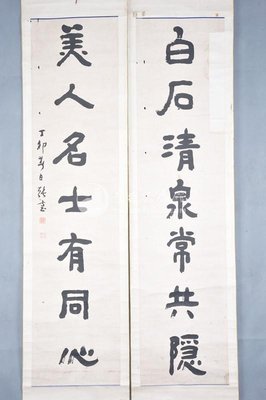 白石清泉常共隱
美人名士有同心
丁卯